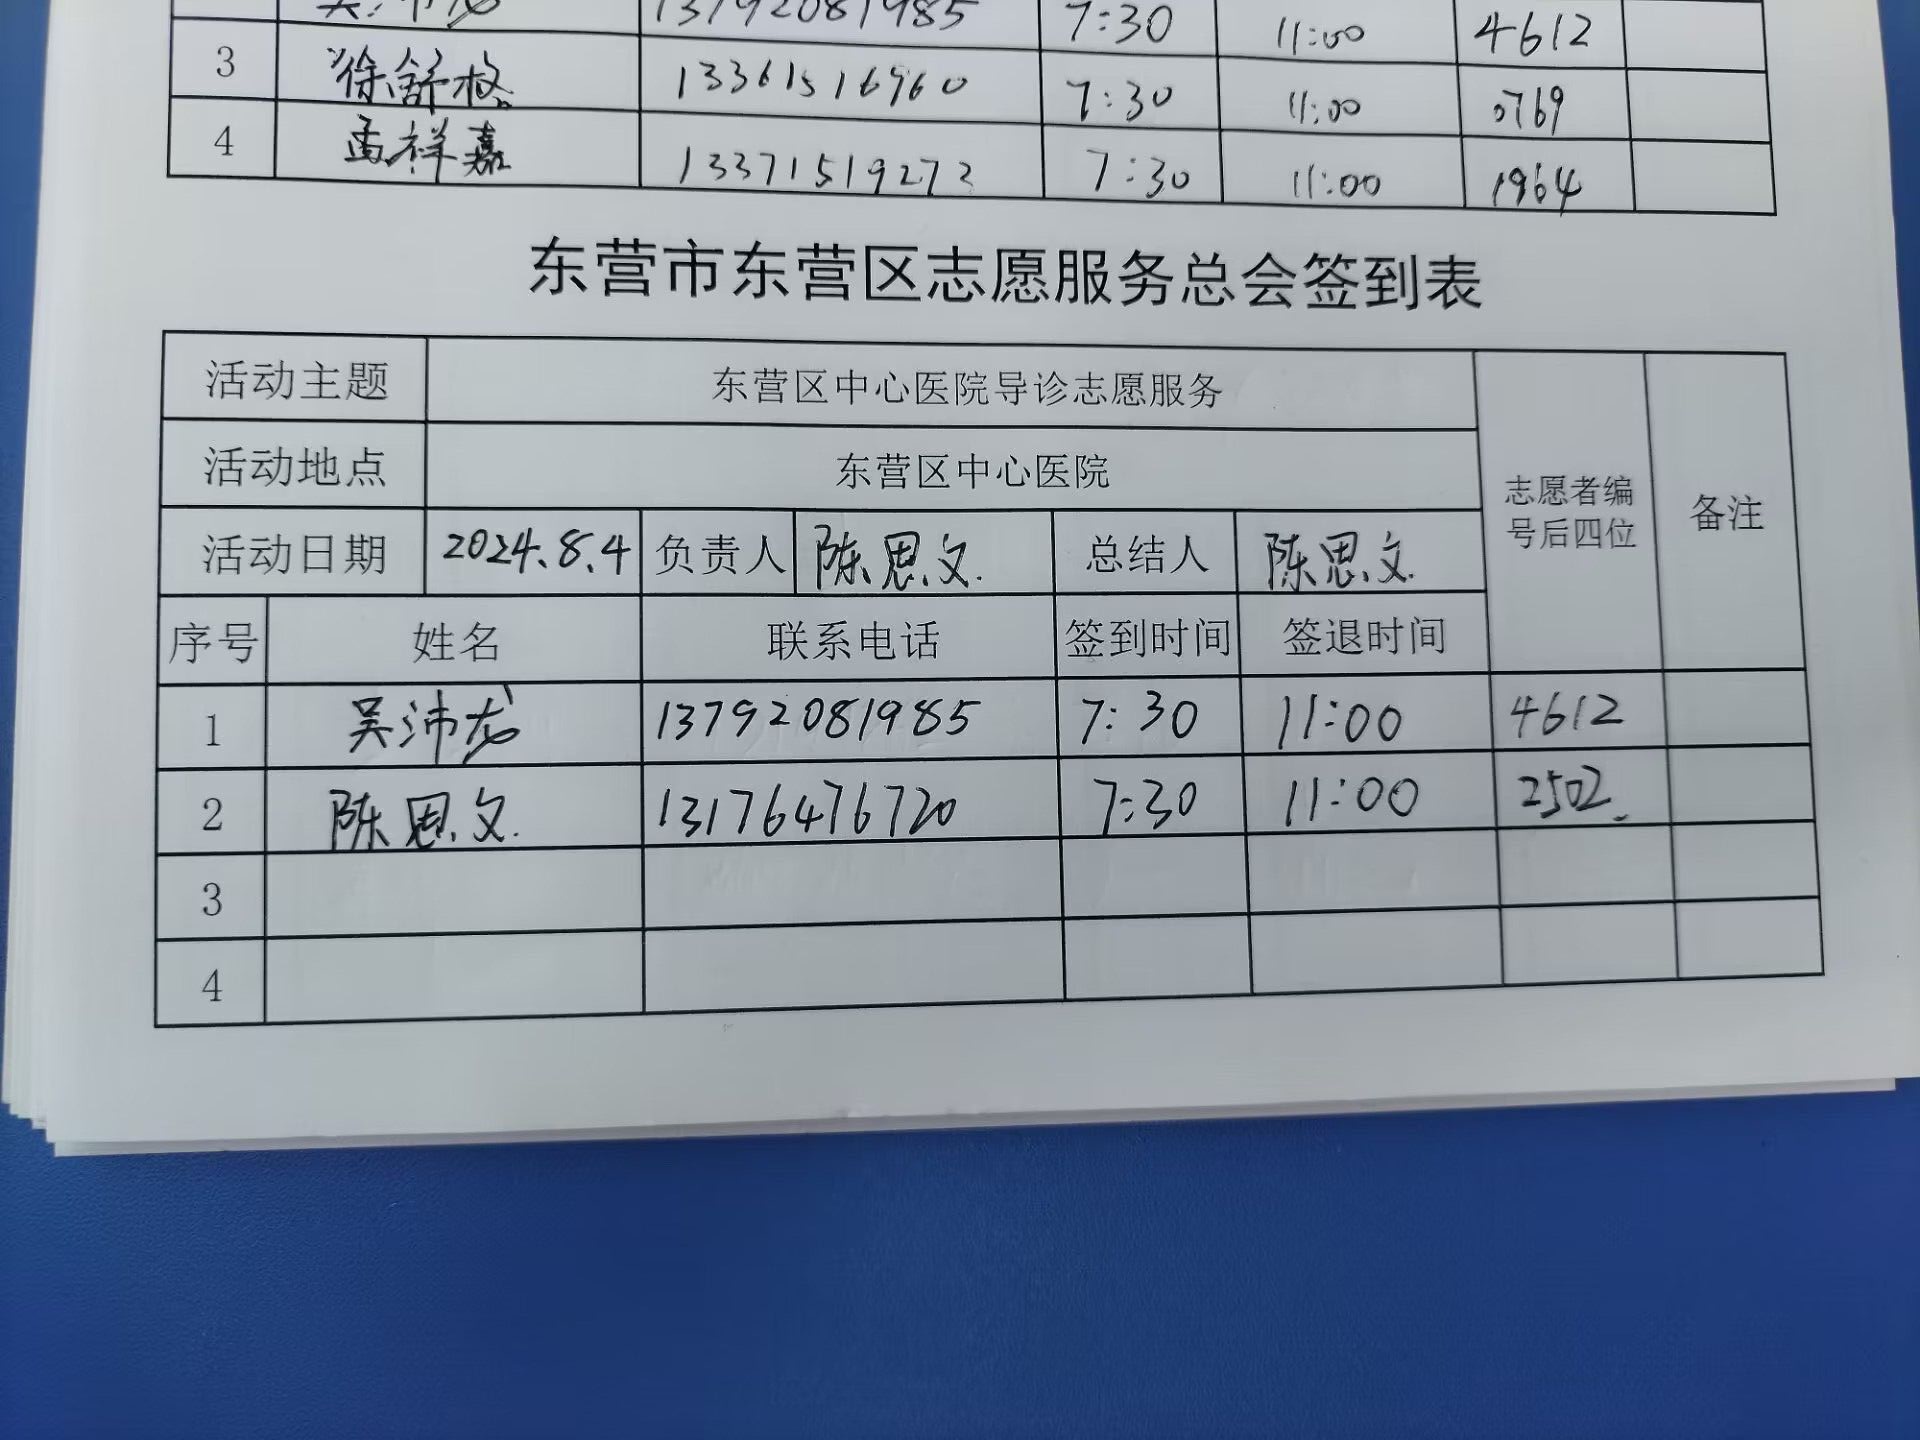 吴沛龙 13792081985 7:30 11:00 4612
3 徐舒格 13361516960 7:30 11:00 0769
4 孟祥嘉 13371519272 7:30 11:00 1964
东营市东营区志愿服务总会签到表
活动主题 东营区中心医院导诊志愿服务 志愿者编号后四位 备注
活动地点 东营区中心医院
活动日期 2024.8.4 负责人 陈思文 总结人 陈思文
序号 姓名 联系电话 签到时间 签退时间
1 吴沛龙 13792081985 7:30 11:00 4612
2 陈思文 13176476720 7:30 11:00 2502
3
4